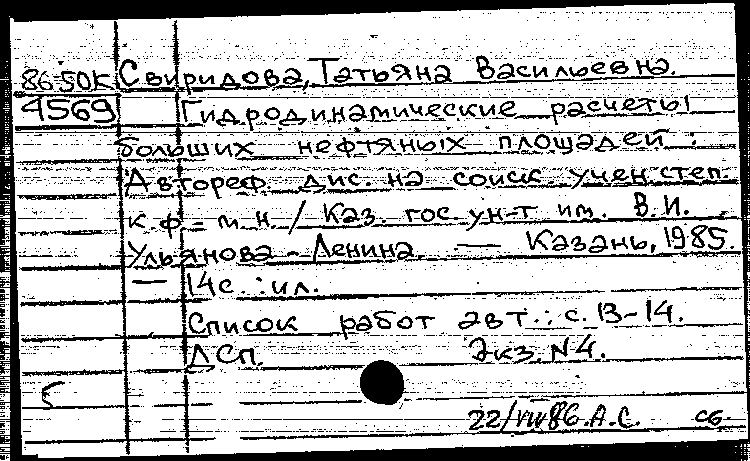 86-50к Свиридова, Татьяна Васильевна.
4569 Гидродинамические расчеты
больших нефтяных площадей :
Автореф. дис. на соиск. учен. степ.
к. ф.-м. н. / Каз. гос. ун-т им. В.И.
Ульянова-Ленина. — Казань, 1985.
— 14 с. : ил.
Список работ авт.: с. 13-14.
ДСП. Экз. N 4.
22/VII 86. А.С. сб.